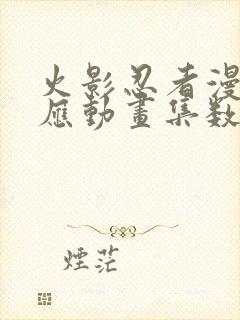 火影忍者漫
應動畫集数
煙茫